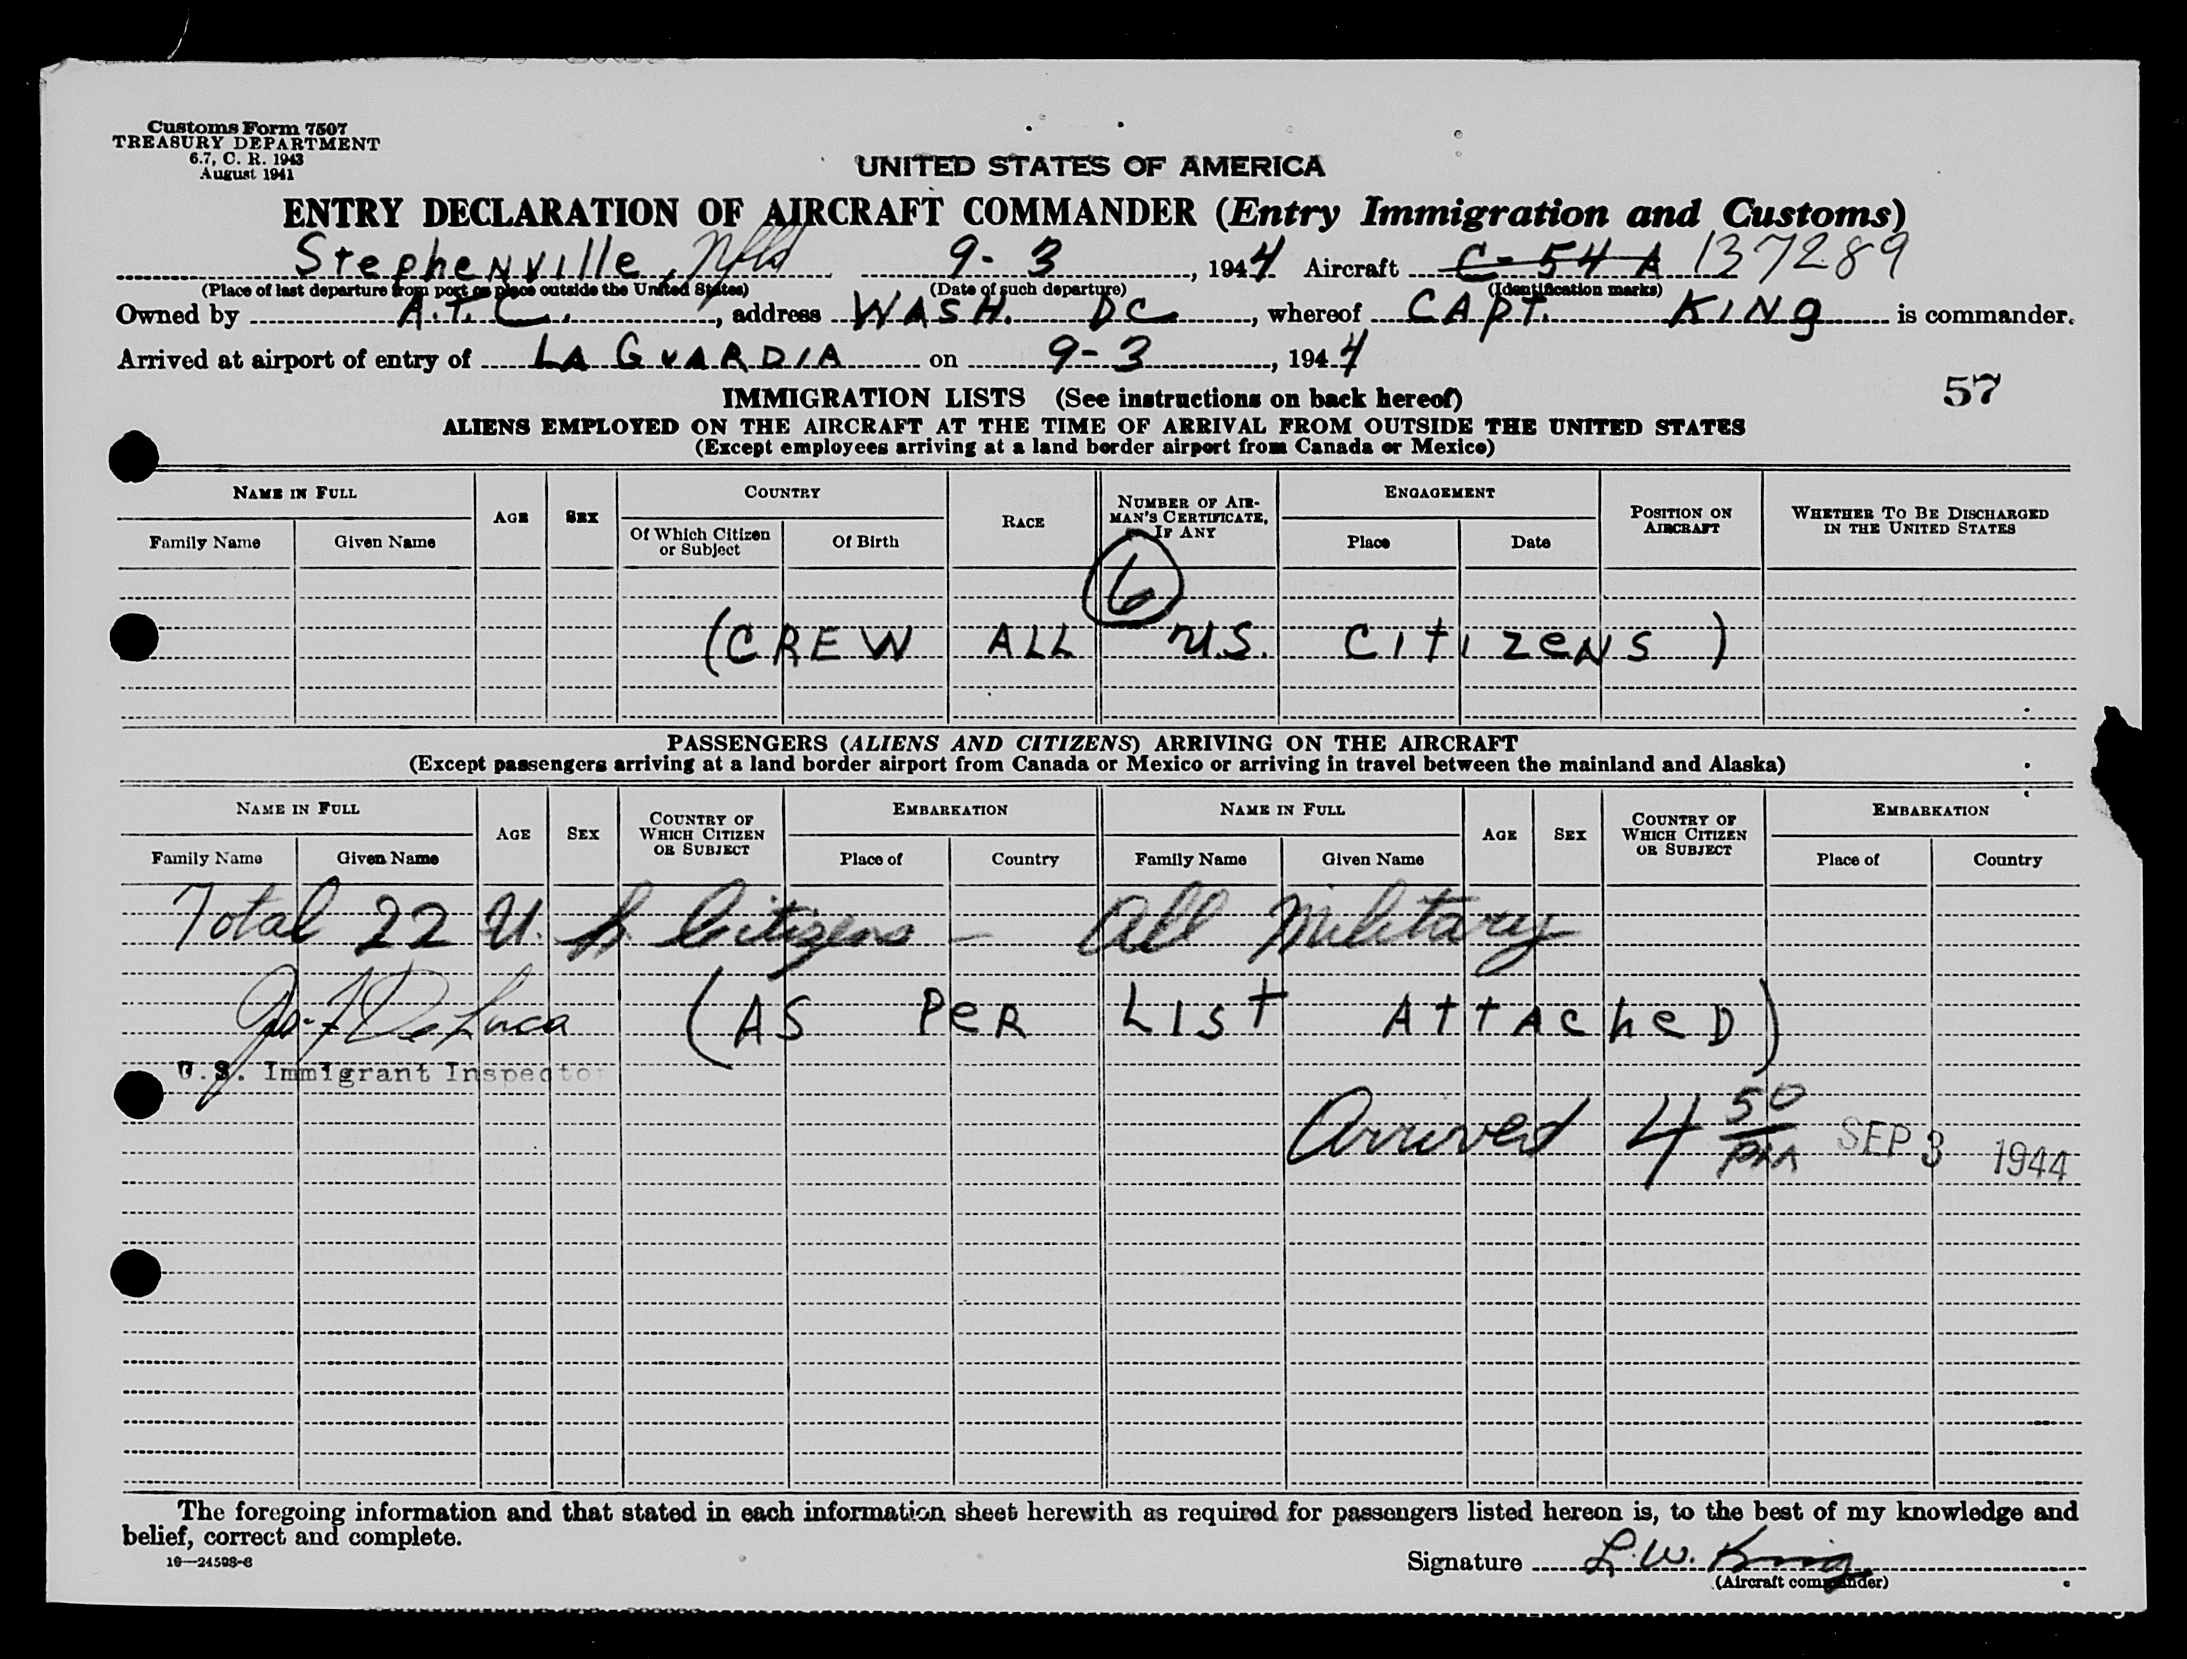 Customs Form 7507
TREASURY DEPARTMENT
6.7, C. R. 1943
August 1941
UNITED STATES OF AMERICA
ENTRY DECLARATION OF AIRCRAFT COMMANDER (Entry Immigration and Customs)
Stephenville, Nfld 9-3, 1944 Aircraft C-54 A 137289
(Place of last departure from port or place outside the United States) (Date of such departure) (Identification marks)
Owned by A.T.C., address WASH. DC, whereof CAPT. KINg is commander.
Arrived at airport of entry of LA GUARDIA on 9-3, 1944
57
IMMIGRATION LISTS (See instructions on back hereof)
ALIENS EMPLOYED ON THE AIRCRAFT AT THE TIME OF ARRIVAL FROM OUTSIDE THE UNITED STATES
(Except employees arriving at a land border airport from Canada or Mexico)
NAME IN FULL AGE SEX COUNTRY RACE NUMBER OF AIRMAN'S CERTIFICATE, IF ANY ENGAGEMENT POSITION ON AIRCRAFT WHETHER TO BE DISCHARGED IN THE UNITED STATES
Family Name Given Name Of Which Citizen or Subject Of Birth Place Date
6
(CREW ALL U.S. CItIzeNS)
PASSENGERS (ALIENS AND CITIZENS) ARRIVING ON THE AIRCRAFT
(Except passengers arriving at a land border airport from Canada or Mexico or arriving in travel between the mainland and Alaska)
NAME IN FULL AGE SEX COUNTRY OF WHICH CITIZEN OR SUBJECT EMBARKATION NAME IN FULL AGE SEX COUNTRY OF WHICH CITIZEN OR SUBJECT EMBARKATION
Family Name Given Name Place of Country Family Name Given Name Place of Country
Total 22 U. S Citizens - All Military
Jos. F De Luca (AS PeR LISt AttAcheD)
U.S. Immigrant Inspector
Arrived 4 50 PM SEP 3 1944
The foregoing information and that stated in each information sheet herewith as required for passengers listed hereon is, to the best of my knowledge and
belief, correct and complete.
16—24598-6
Signature L.W. King
(Aircraft commander)